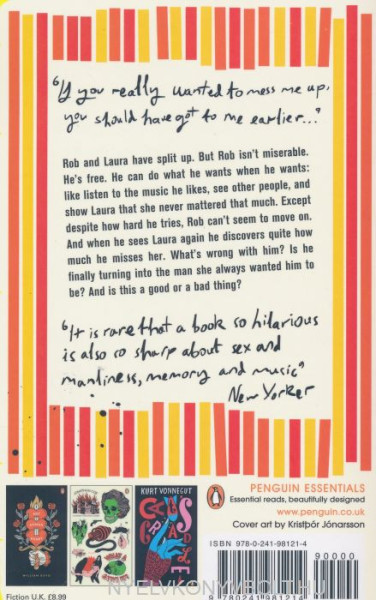 "If you really wanted to mess me up,
you should have got to me earlier..."
Rob and Laura have split up. But Rob isn't miserable.
He's free. He can do what he wants when he wants:
like listen to the music he likes, see other people, and
show Laura that she never mattered that much. Except
despite how hard he tries, Rob can't seem to move on.
And when he sees Laura again he discovers quite how
much he misses her. What's wrong with him? Is he
finally turning into the man she always wanted him to
be? And is this a good or a bad thing?
"It is rare that a book so hilarious
is also so sharp about sex and
manliness, memory and music"
New Yorker
PENGUIN ESSENTIALS
Essential reads, beautifully designed
www.penguin.co.uk
Cover art by Kristþór Jónarsson
KURT VONNEGUT
ISBN 978-0-241-98121-4
90000
9 780241 981214
Fiction U.K. £8.99
NYELVKONYVBOLT.HU